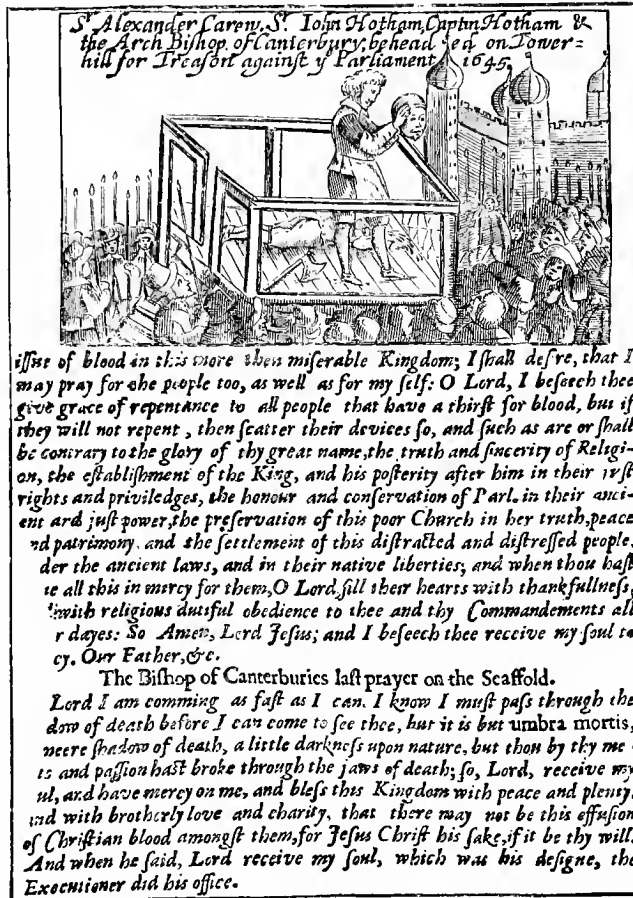 Sr Alexander Carew. Sr. Iohn Hotham, Captin Hotham &
the Arch Bishop of Canterbury, behead ed on Tower=
hill for Treason against ye Parliament 1645
issue of blood in this more then miserable Kingdom; I shall desire, that I
may pray for the people too, as well as for my self: O Lord, I beseech thee
give grace of repentance to all people that have a thirst for blood, but if
they will not repent, then scatter their devices so, and such as are or shall
be contrary to the glory of thy great name, the truth and sincerity of Religi-
on, the establishment of the King, and his posterity after him in their just
rights and priviledges, the honour and conservation of Parl. in their anci-
ent and just power, the preservation of this poor Church in her truth, peace
nd patrimony, and the settlement of this distracted and distressed people,
der the ancient laws, and in their native liberties; and when thou hast
ie all this in mercy for them, O Lord, fill their hearts with thankfullness,
with religious dutiful obedience to thee and thy Commandements all
r dayes: So Amen, Lord Jesus; and I beseech thee receive my soul to
cy. Our Father, &c.
The Bishop of Canterburies last prayer on the Scaffold.
Lord I am comming as fast as I can. I know I must pass through the
dow of death before I can come to see thee, but it is but umbra mortis,
neere shadow of death, a little darkness upon nature, but thou by thy me
ts and passion hast broke through the jaws of death; so, Lord, receive my
ul, and have mercy on me, and bless this Kingdom with peace and plenty,
and with brotherly love and charity, that there may not be this effusion
of Christian blood amongst them, for Jesus Christ his sake, if it be thy will.
And when he said, Lord receive my soul, which was his designe, the
Executioner did his office.